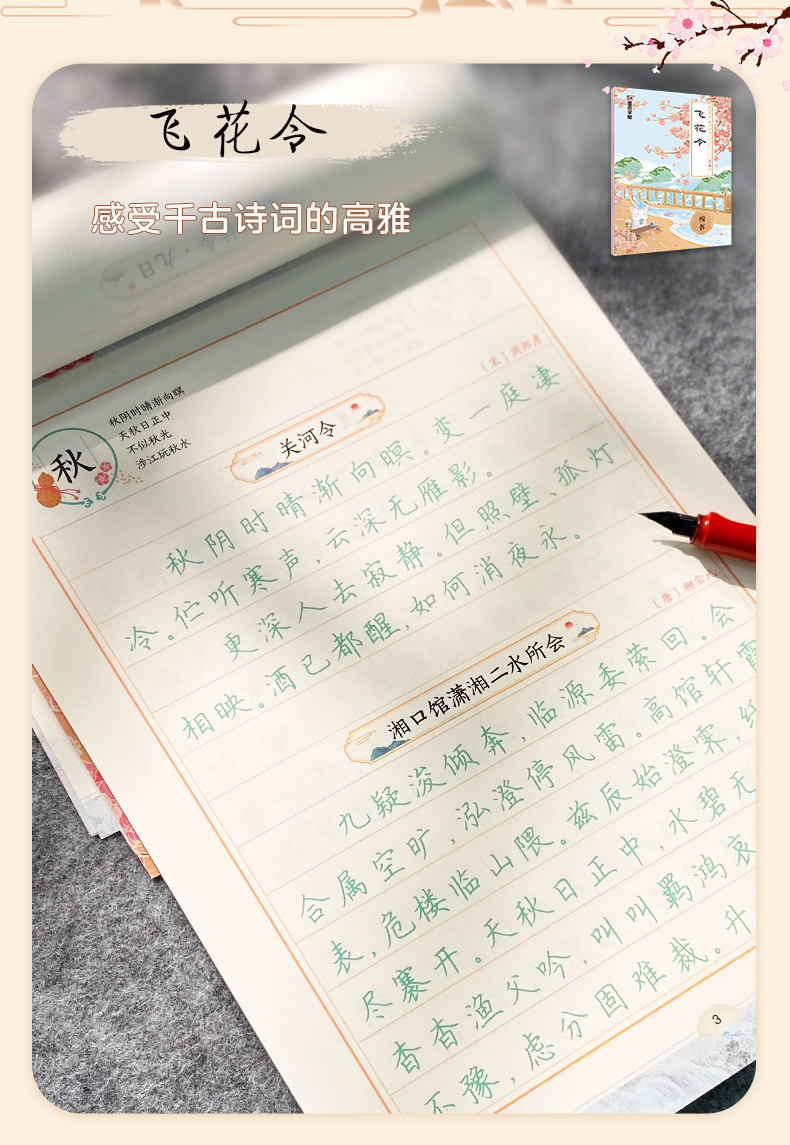 飞花令
飞花令
楷书
感受千古诗词的高雅
〔宋〕周邦彦
秋
秋阴时晴渐向暝
天秋日正中
不似秋光
涉江玩秋水
关河令
秋阴时晴渐向暝。变一庭凄
冷。伫听寒声，云深无雁影。
更深人去寂静。但照壁、孤灯
相映。酒已都醒，如何消夜永。
〔唐〕柳宗元
湘口馆潇湘二水所会
九疑浚倾奔，临源委萦回。会
合属空旷，泓澄停风雷。高馆轩霞
表，危楼临山隈。兹辰始澄霁，纤
尽褰开。天秋日正中，水碧无
杳杳渔父吟，叫叫羁鸿哀
不豫，虑分固难裁。升
3